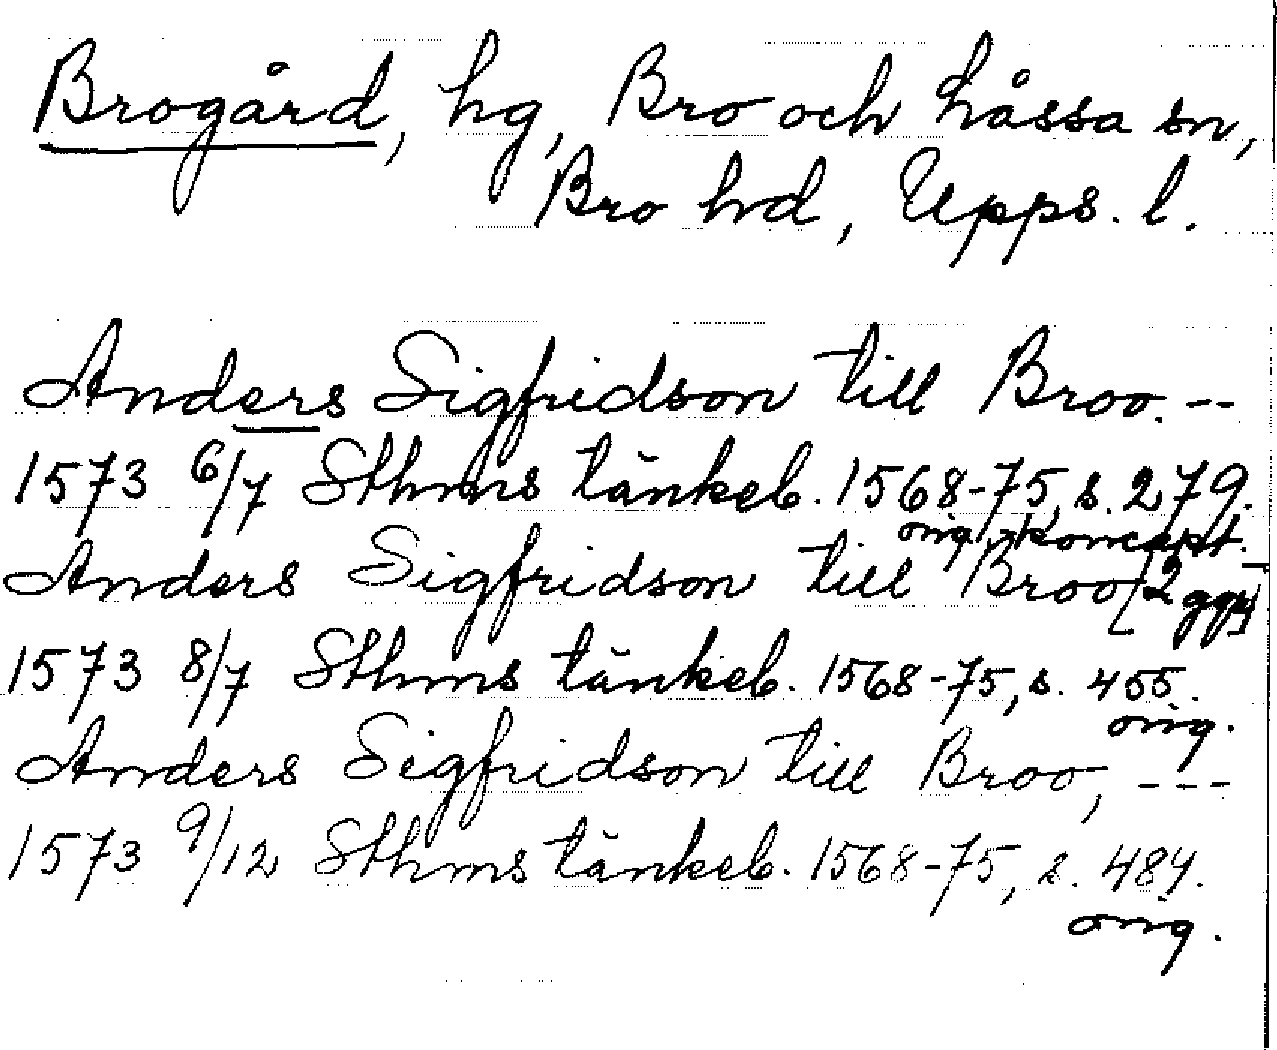 Brogård, hg, Bro och Låssa sn,
Bro hd, Upps. l.
Anders Sigfridson till Broo. --
1573 6/7 Sthms tänkeb. 1568-75, s. 279.
orig. koncept.
Anders Sigfridson till Broo [2 ggr]
1573 8/7 Sthms tänkeb. 1568-75, s. 455.
orig.
Anders Sigfridson till Broo, ---
1573 9/12 Sthms tänkeb. 1568-75, s. 484.
orig.